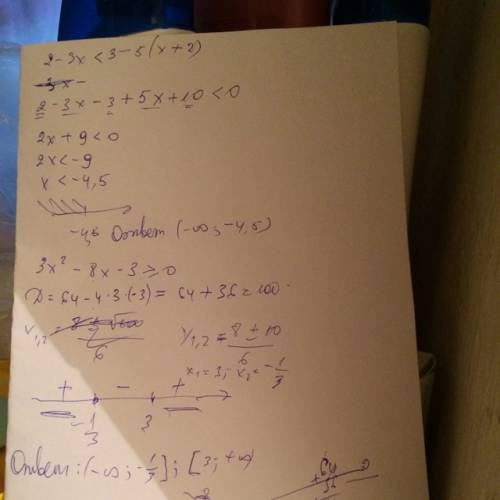 2-3x<3-5(x+2)
2-3x-3+5x+10<0
2x+9<0
2x<-9
x<-4,5
-4,5 Ответ (-∞; -4,5)
3x²-8x-3≥0
D=64-4·3·(-3)=64+36=100
x1,2 = (8±10)/6
x₁=3; x₂=-1/3
+ - +
-1/3 3
Ответ: (-∞; -1/3]; [3; +∞)